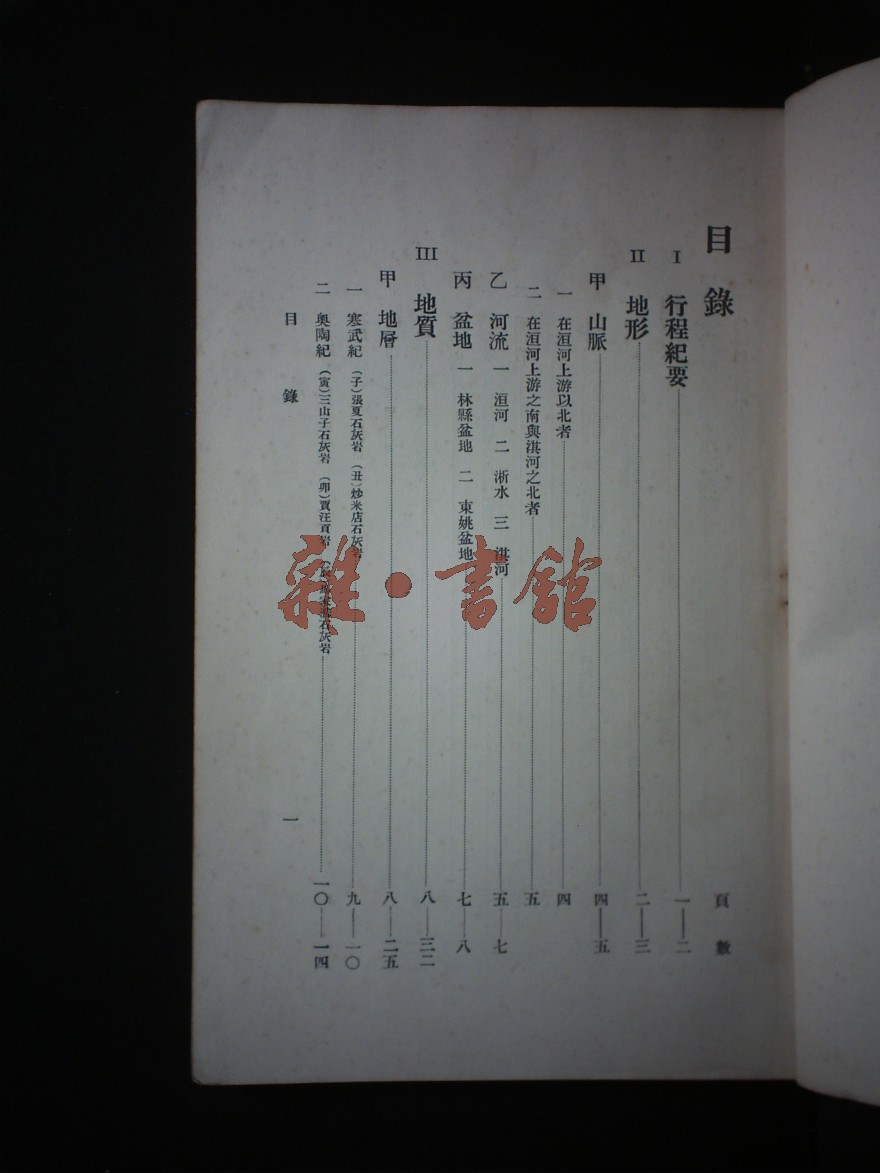 目錄 頁數
I 行程紀要 一—二
II 地形 二—三
甲 山脈 四—五
一 在洹河上游以北者 四
二 在洹河上游之南與淇河之北者 五
乙 河流 一 洹河 二 淅水 三 淇河 五—七
丙 盆地 一 林縣盆地 二 東姚盆地 七—八
III 地質 八—三二
甲 地層 八—二五
一 寒武紀 (子)張夏石灰岩 (丑)炒米店石灰岩 九—一〇
二 奧陶紀 (寅)三山子石灰岩 (卯)賈汪頁岩 石灰岩 一〇—一四
目錄 一
雜·書館